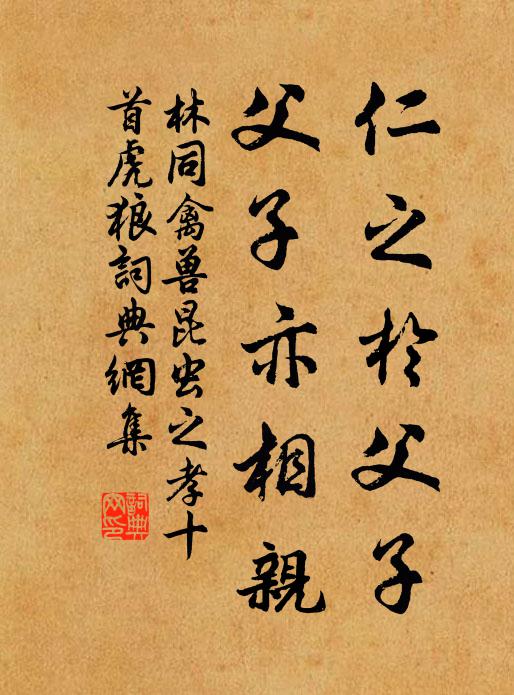 仁之於父子
父子亦相親
林同禽兽昆虫之孝十
首虎狼詞典網集
詞典
网印